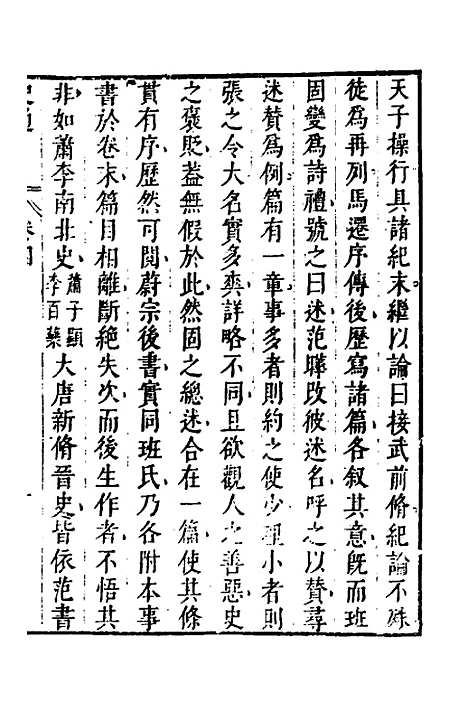 天子操行具諸紀末繼以論曰接武前脩紀論不殊
徒爲再列馬遷序傳後歷寫諸篇各叙其意旣而班
固變爲詩禮號之曰述范曄改彼述名呼之以贊尋
述贊爲例篇有一章事多者則約之使少理小者則
張之令大名實多爽詳略不同且欲觀人之善惡史
之褒貶葢無假於此然固之總述合在一篇使其條
貫有序歷然可閱蔚宗後書實同班氏乃各附本事
書於卷末篇目相離斷絶失次而後生作者不悟其
非如蕭李南北史蕭子顯李百藥大唐新脩晉史皆依范書
史通 卷四